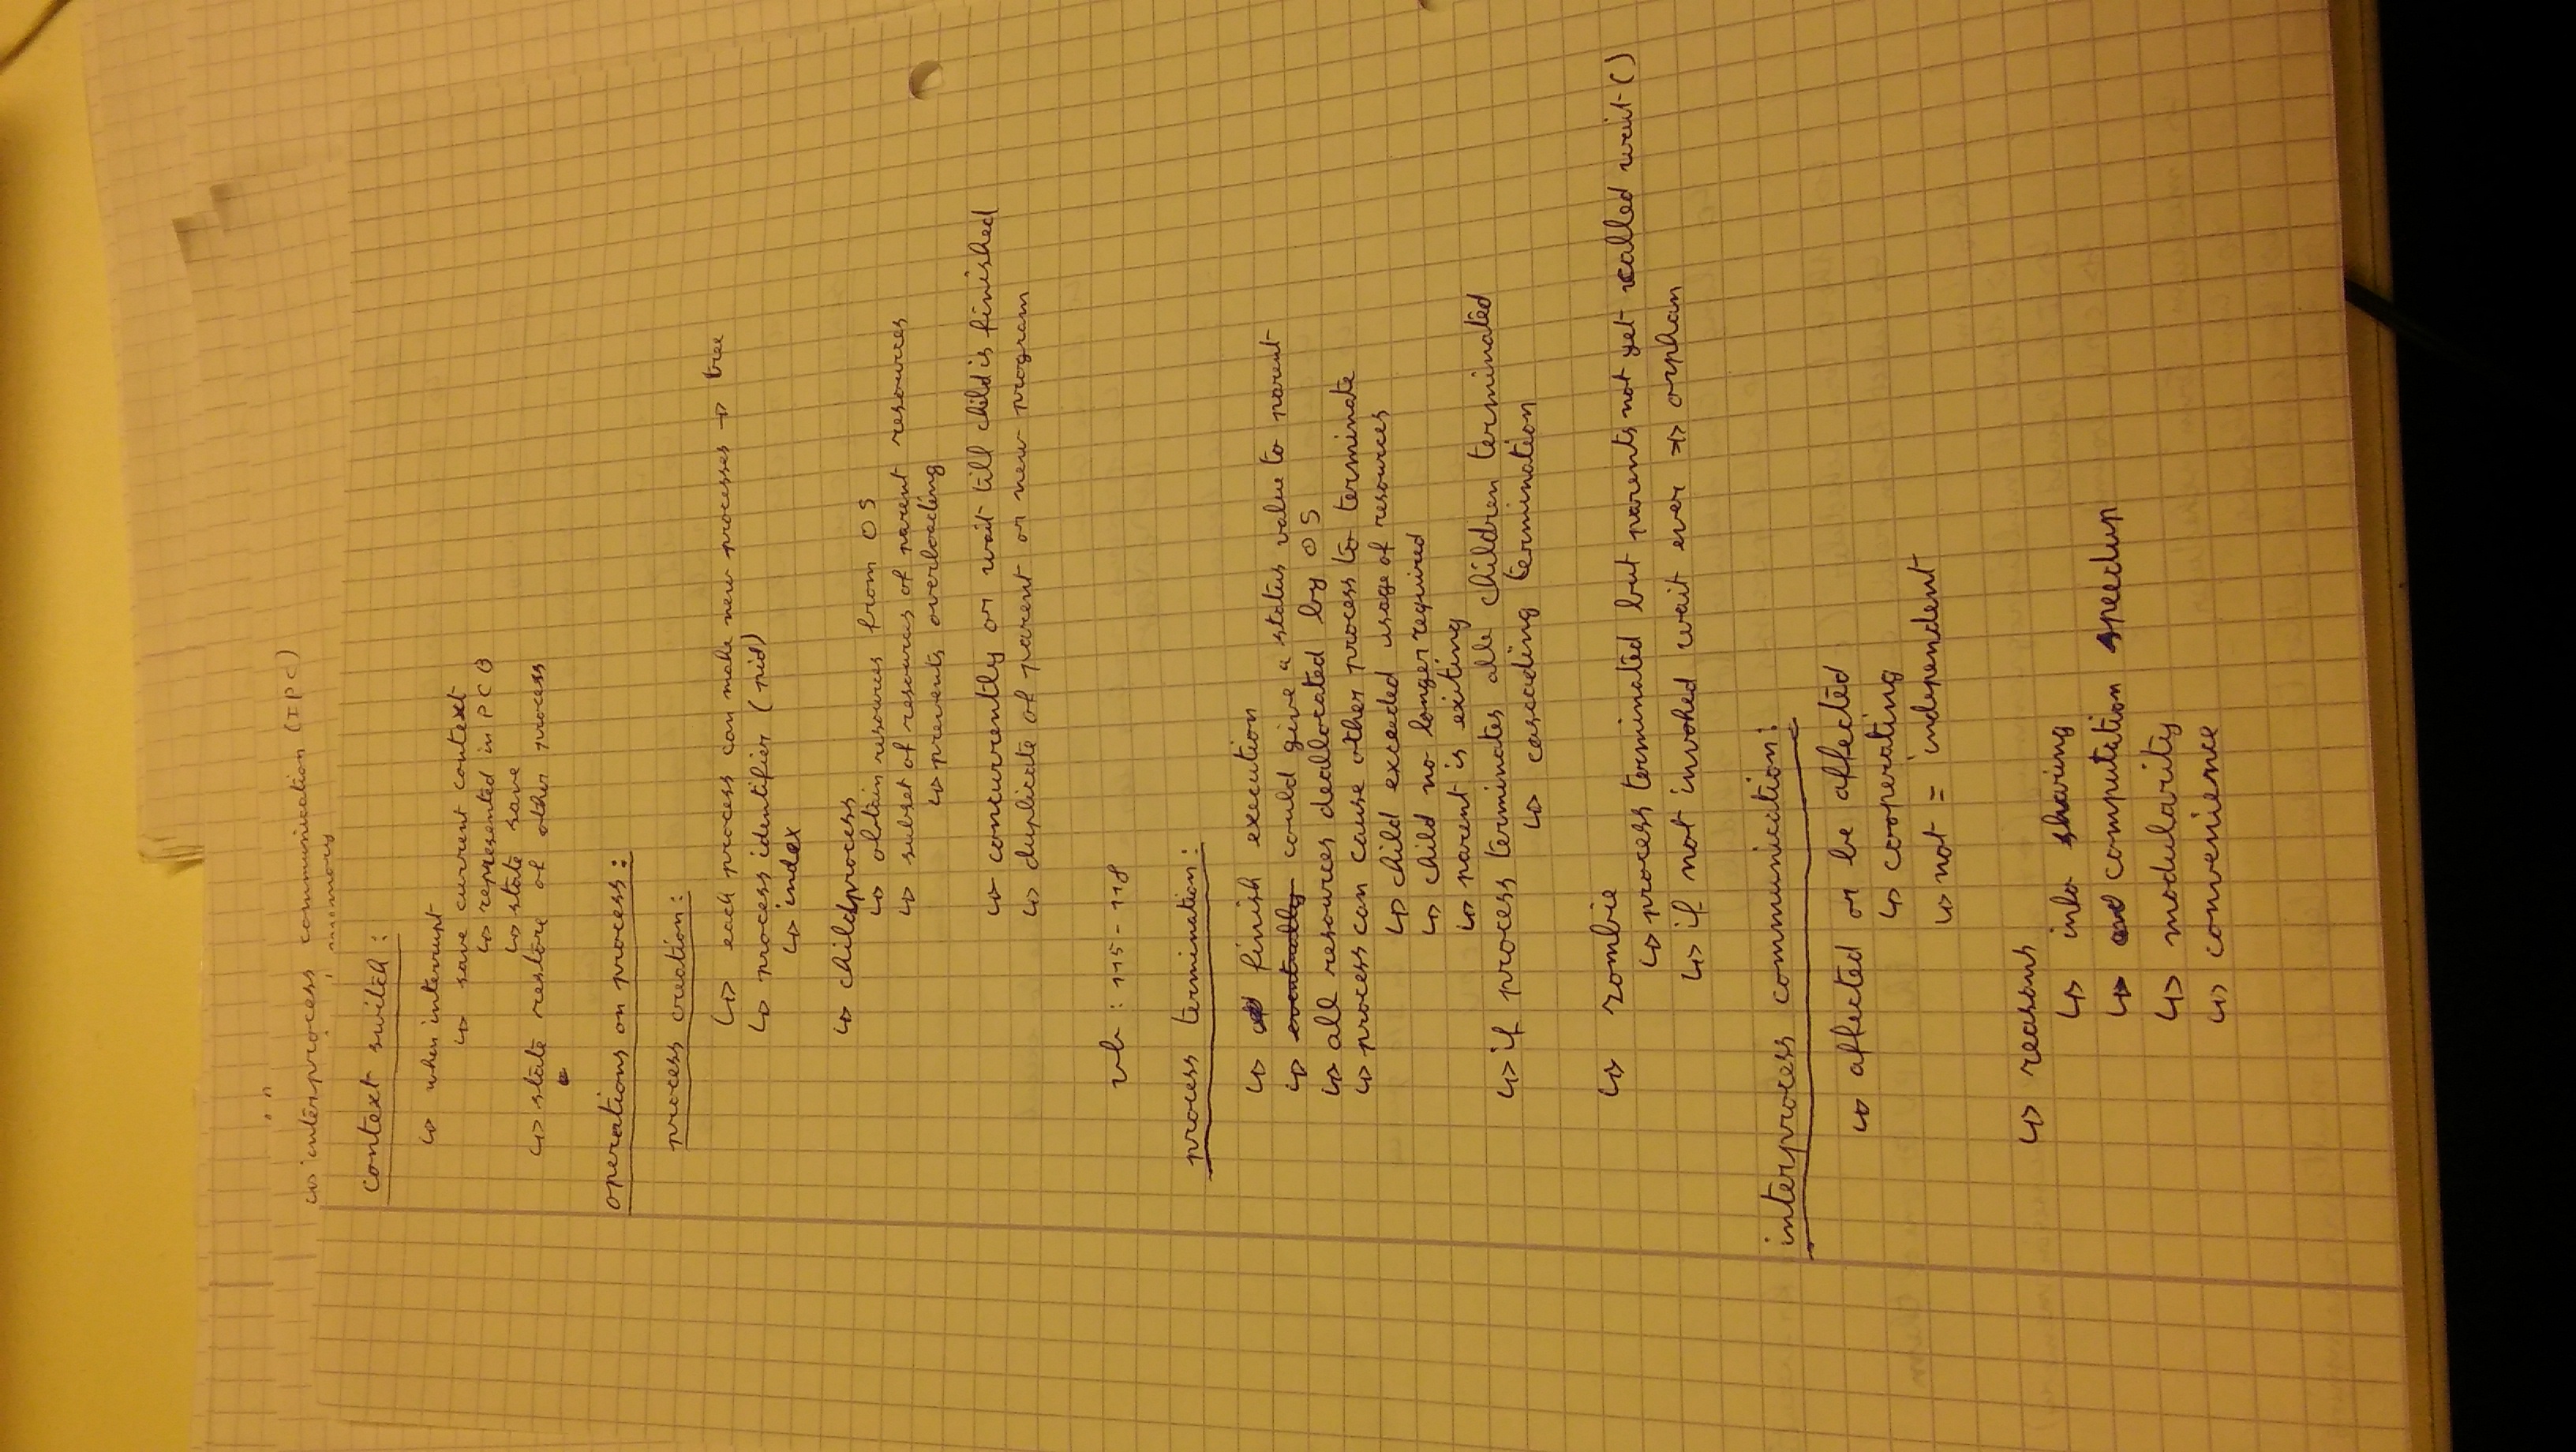 ↳ interprocess communication (IPC)
memory
context switch:
↳ when interrupt
↳ save current context
↳ represented in PCB
↳ state save
↳ state restore of other process
operations on process:
process creation:
↳ each process can make new processes → tree
↳ process identifier (pid)
↳ index
↳ childprocess
↳ obtain resources from OS
↳ subset of resources of parent resources
↳ prevents overloading
↳ concurrently or wait till child is finished
↳ duplicate of parent or new program
vb: 115-118
process termination:
↳ finish execution
↳ eventually could give a status value to parent
↳ all resources deallocated by OS
↳ process can cause other process to terminate
↳ child exceeded usage of resources
↳ child no longer required
↳ parent is exiting
↳ if process terminates alle children terminated
↳ cascading termination
↳ zombie
↳ process terminated but parents not yet called wait()
↳ if not invoked wait ever → orphan
interprocess communication:
↳ affected or be affected
↳ cooperating
↳ not = independent
↳ reasons
↳ info sharing
↳ computation speedup
↳ modularity
↳ convenience